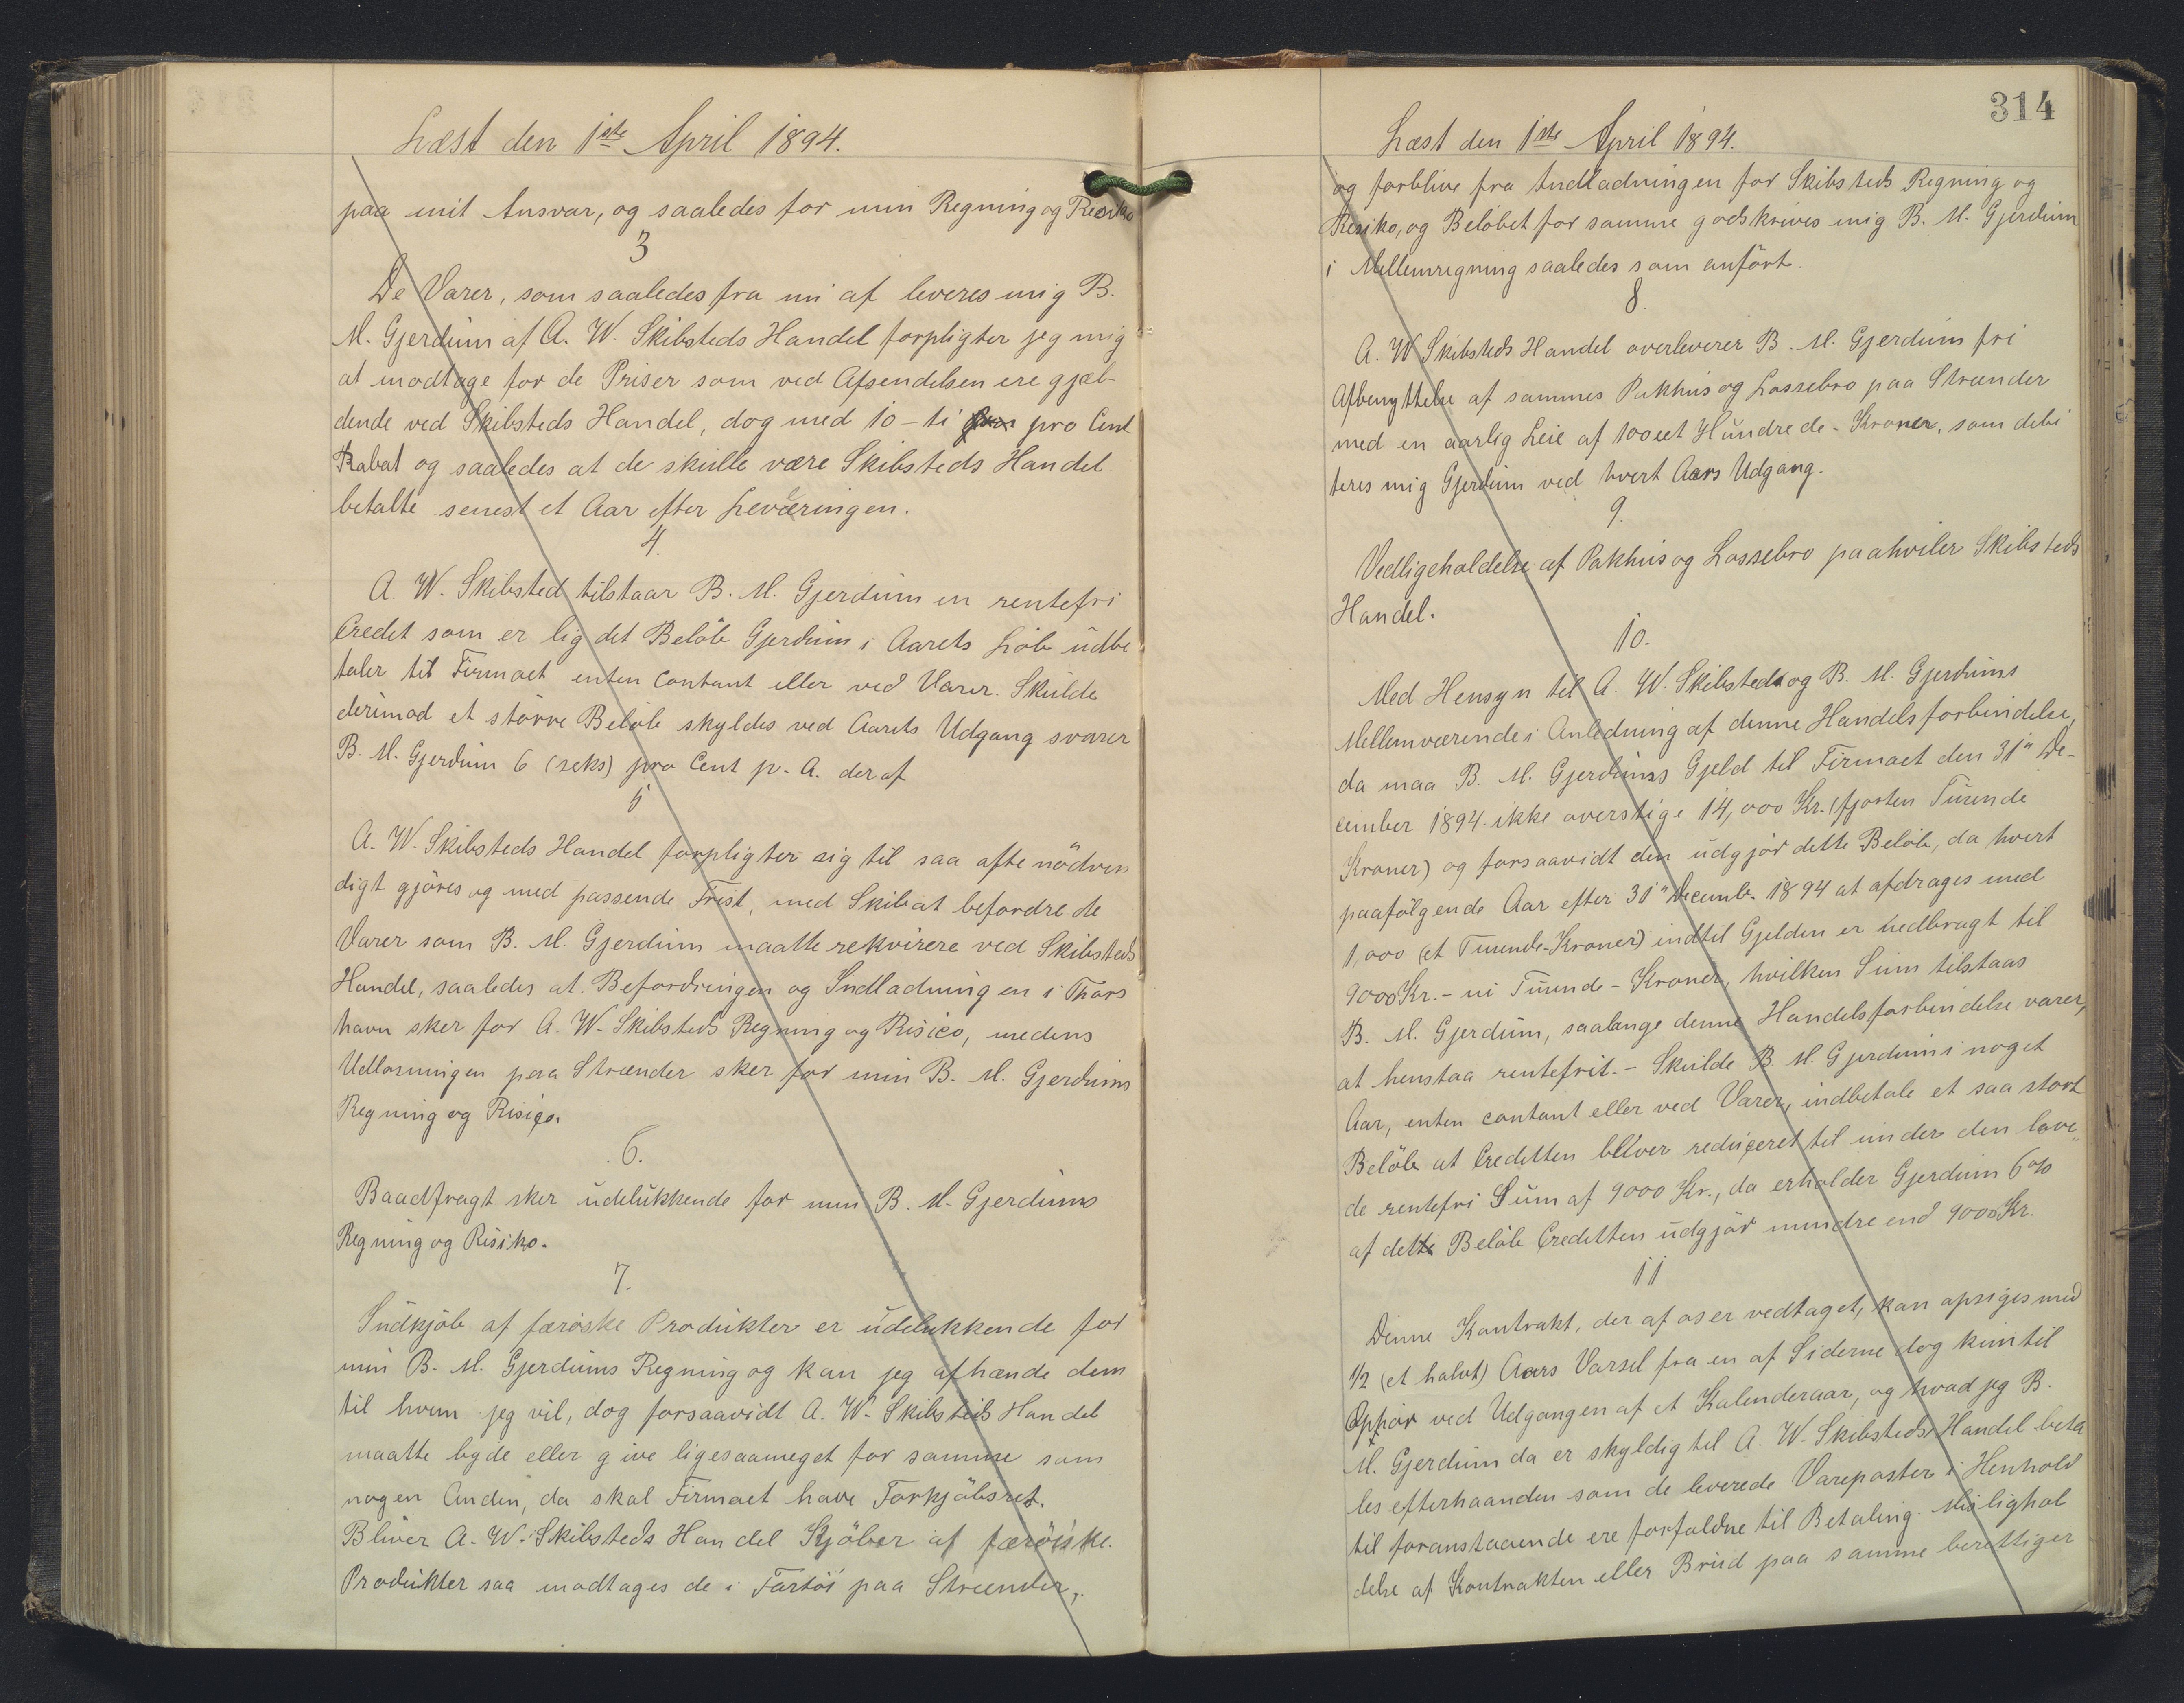 Læst den 1ste April 1894.
paa mit Ansvar, og saaledes for min Regning og Resiko
3
De Varer, som saaledes fra nu af leveres mig B.
M. Gjerdum af A. W. Skibsteds Handel forpligter jeg mig
at modtage for de Priser som ved Afsendelsen ere gjæl-
dende ved Skibsteds Handel, dog med 10 - ti pro Cent
Rabat og saaledes at de skulle være Skibsteds Handel
betalte senest et Aar efter Leveringen.
4.
A. W. Skibsted tilstaar B. M. Gjerdum en rentefri
Credet som er lig det Beløb Gjerdum i Aarets Løb udbe
taler til Firmaet enten Contant eller ved Varer. Skulde
derimod et større Beløb skyldes ved Aarets Udgang svarer
B. M. Gjerdum 6 (seks) pro Cent p. A. deraf
5
A. W. Skibsteds Handel forpligter sig til saa ofte nödven
digt gjöres og med passende Frist, med Skib at befordre de
Varer som B. M. Gjerdum maatte rekvirere ved Skibsteds
Handel, saaledes at Befordringen og Indladningen i Thors
havn sker for A. W. Skibsteds Regning og Risico, medens
Udlosningen paa Strænder sker for min B. M. Gjerdums
Regning og Risico.
6.
Baadfragt sker udelukkende for min B. M. Gjerdums
Regning og Risiko.
7.
Indkjöb af færöske Produkter er udelukkende for
min B. M. Gjerdums Regning og kan jeg afhænde dem
til hvem jeg vil, dog forsaavidt A. W. Skibsteds Handel
maatte byde eller give ligesaameget for samme som
nogen Anden, da skal Firmaet have Forkjöbsret.
Bliver A. W. Skibsteds Handel Kjöber af færöiske
Produkter saa modtages de i Fartöi paa Strænder,
314
Læst den 1ste April 1894.
og forblive fra Indladningen for Skibsteds Regning og
Resiko, og Beløbet for samme godskrives mig B. M. Gjerdum
i Mellemregning saaledes som anført.
8.
A. W. Skibsteds Handel overleverer B. M. Gjerdum fri
Afbenyttelse af sammes Pakhus og Lossebro paa Strænder
med en aarlig Leie af 100 eet Hundrede - Kroner, som debi
teres mig Gjerdum ved hvert Aars Udgang.
9.
Vedligeholdelse af Pakhus og Lossebro paahviler Skibsteds
Handel.
10.
Med Hensyn til A. W. Skibsteds og B. M. Gjerdums
Mellemværende i Anledning af denne Handelsforbindelse,
da maa B. M. Gjerdums Gjeld til Firmaet den 31" De-
cember 1894. ikke overstige 14,000 Kr. (fjorten Tusende
Kroner) og forsaavidt den udgjör dette Beløb, da hvert
paafölgende Aar efter 31" Decemb. 1894 at afdrages med
1,000 (et Tusende-Kroner) indtil Gjelden er nedbragt til
9000 Kr. - ni Tusende - Kroner, hvilken Sum tilstaas
B. M. Gjerdum, saalænge denne Handelsforbindelse varer,
at henstaa rentefrit. - Skulde B. M. Gjerdum i noget
Aar, enten contant eller ved Varer, indbetale et saa stort
Beløb at Creditten bliver reduceret til under den lave
de rentefri Sum af 9000 Kr., da erholder Gjerdum 6%
af dette Beløb Creditten udgjör mindre end 9000 Kr.
11
Denne Kontrakt, der af os er vedtaget, kan opsiges med
1/2 (et halvt) Aars Varsel fra en af Siderne dog kun til
Ophør ved Udgangen af et Kalenderaar, og hvad jeg B.
M. Gjerdum da er skyldig til A. W. Skibsteds Handel beta
les efterhaanden som de leverede Vareposter i Henhold
til foranstaaende ere forfaldne til Betaling. Misligehol
delse af Kontrakten eller Brud paa samme berettiger